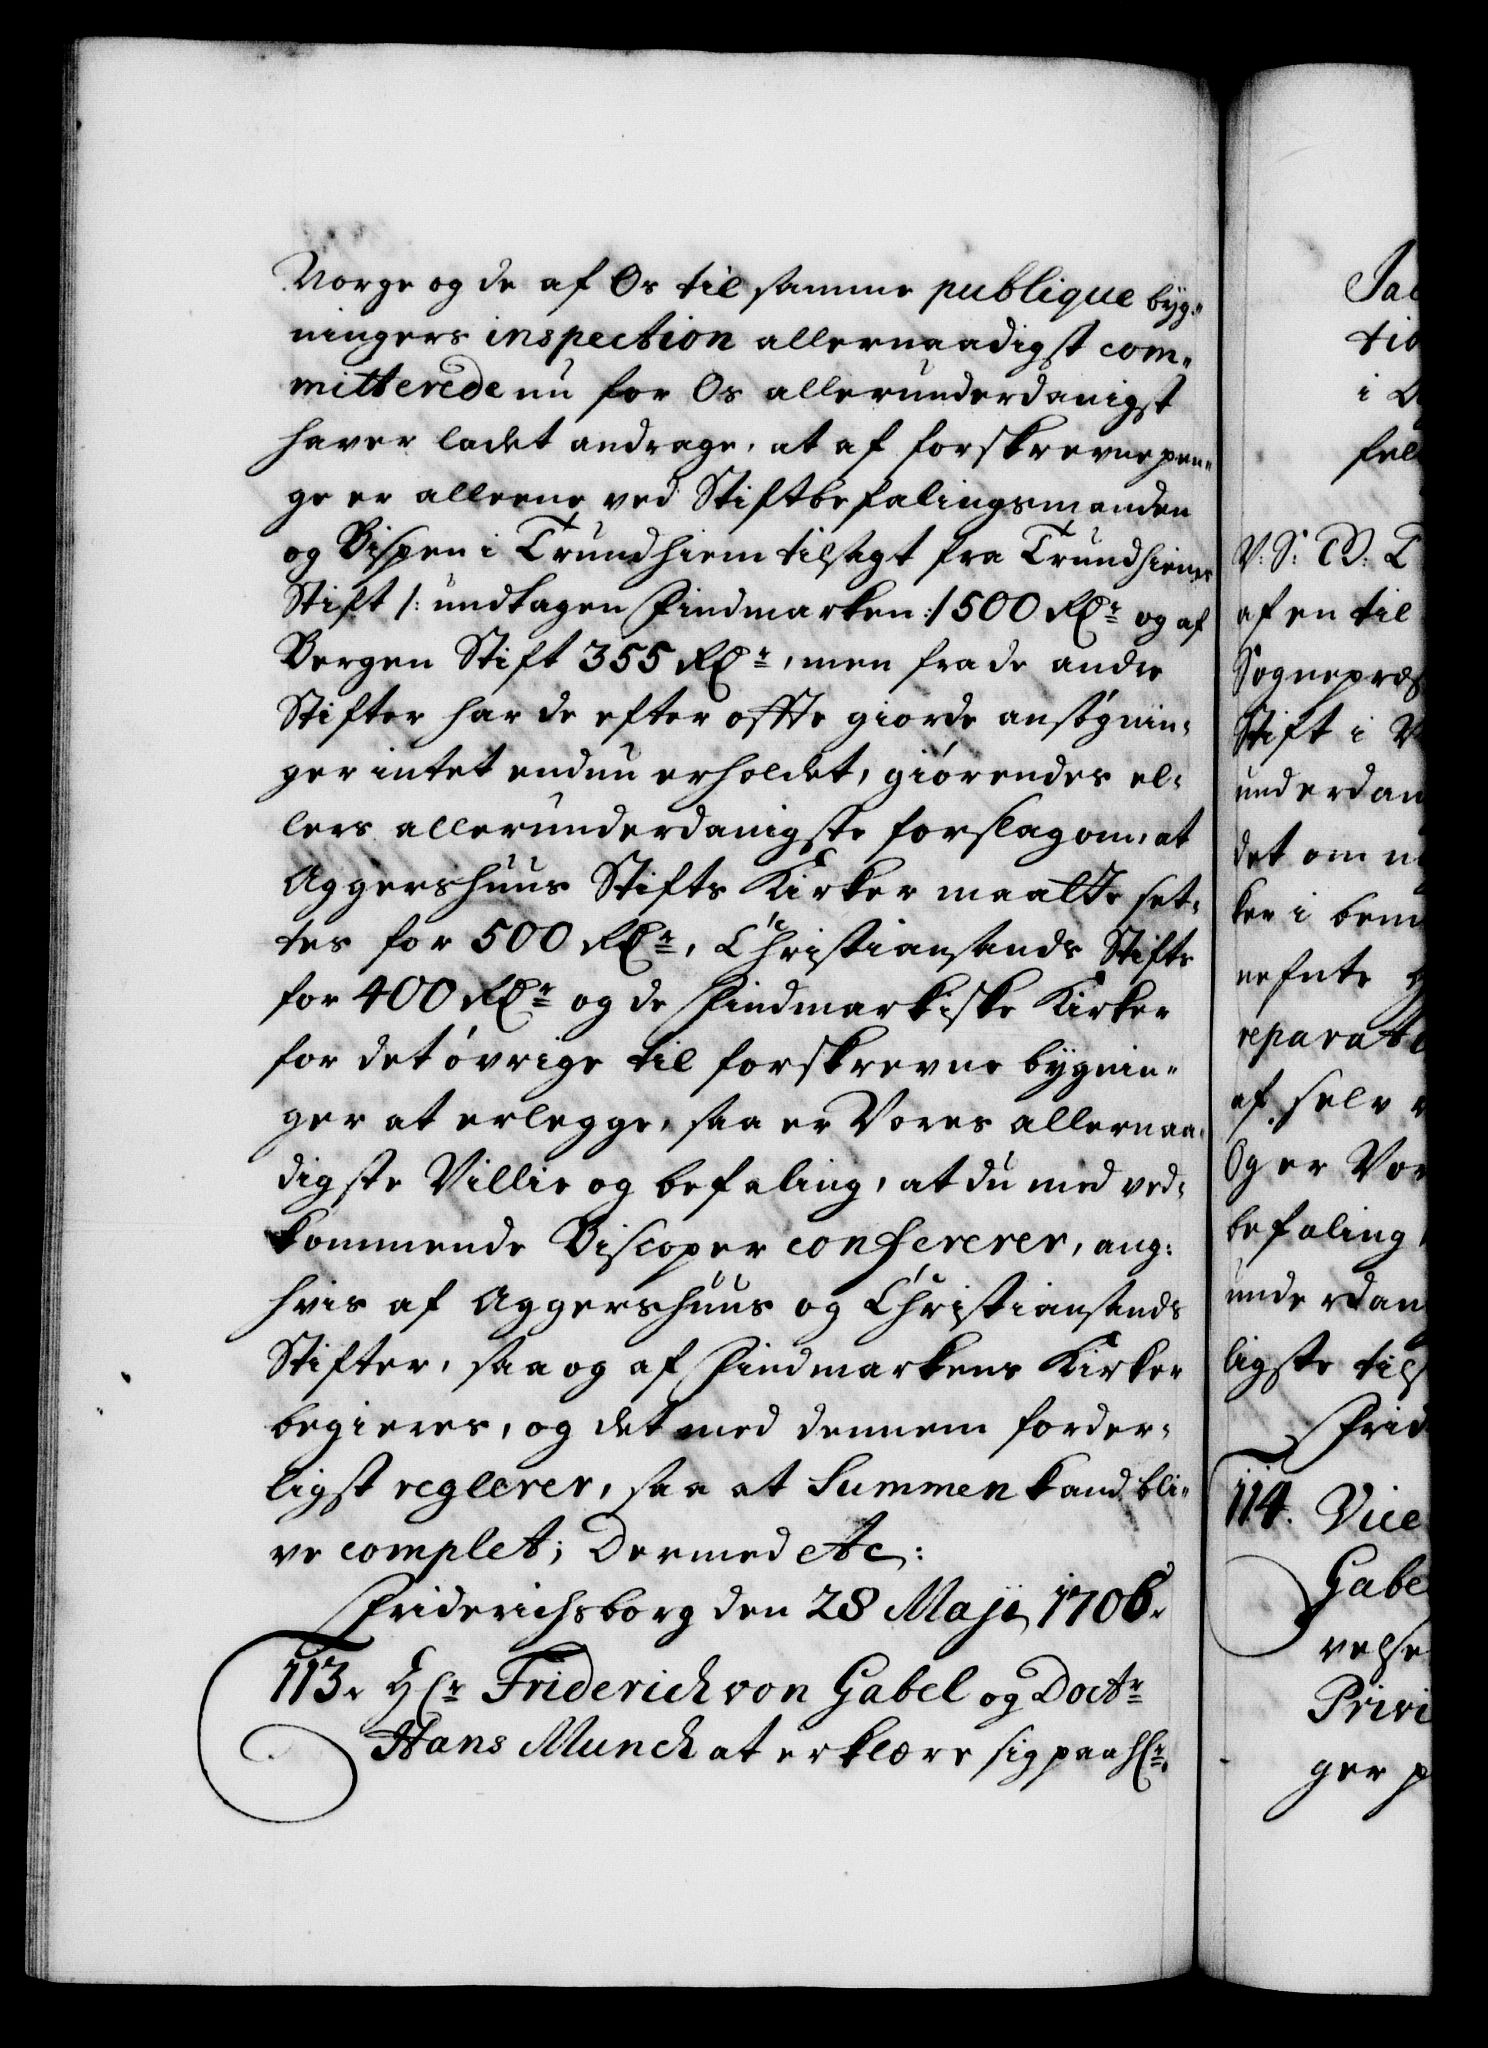 Norge og de af Os til samme publique byg-
ningers inspection allernaadigst com-
mitterede nu for Os allerunderdanigst
haver ladet andrage, at af forskrevne pen-
ge er alleene ved Stiftbefalingsmanden
og Bispen i Trundhiem tilsagt fra Trundhiems
Stift /: undtagen Findmarken :/ 500 Rdr og af
Bergen Stift 355 Rdr, men fra de andre
Stifter har de efter offte giorde ansøgnin-
ger intet endnu erholdet, giørendes el-
lers allerunderdanigste forslag om, at
Aggershuus Stifts Kirker maatte set-
tes for 500 Rdr, Christiansands Stifts
for 400 Rdr og de Findmarkiske Kirker
for det øvrige til forskrevne bygnin-
ger at erlegge, saa er Vores allernaa-
digste Villie og befaling, at du med ved-
kommende Biscoper confererer, ang:
hvis af Aggershuus og Christiansands
Stifter, saa og af Findmarkens Kirker
begieres, og det med dennem forder-
ligst reglerer, saa at Summen kand bli-
ve complet; Dermed etc:
Friderichsborg den 28 Maji 1706.
113. Hr Friderich von Gabel og Doctr
Hans Munch at erklære sig paa Hr.
V: S: G: T
af en til
Sognepræs
Stift i N
underdan
det om
ker i bem
nefnte
reparati
af selv
Og er Vor
befaling
underdan
ligste tils
Frid
114. Vice
Gabe
velse
Privi
ger p